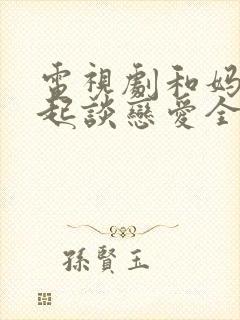 電視劇和妈
起談戀愛全
孫賢玉